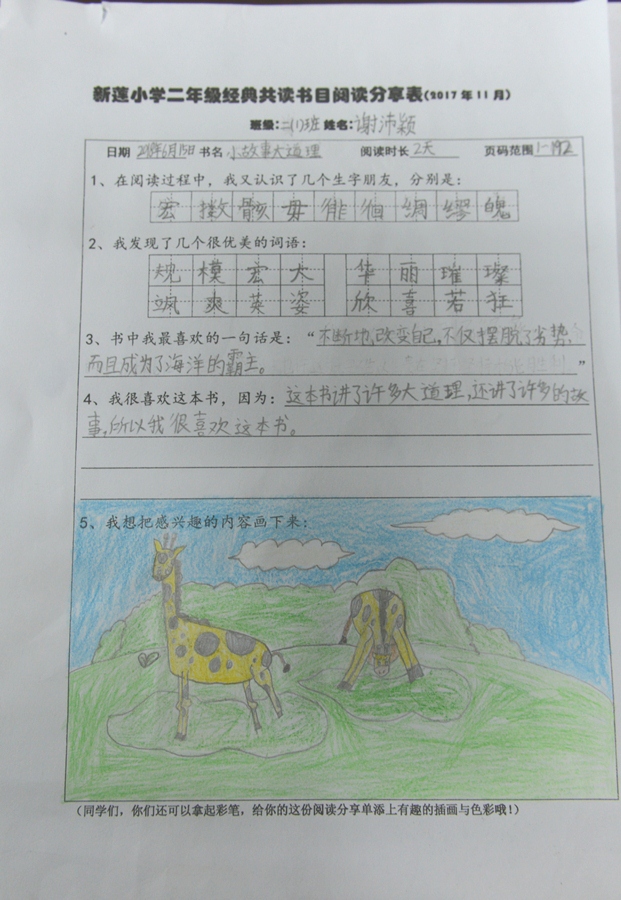 新莲小学二年级经典共读书目阅读分享表(2017年11月)
班级:二(1)班 姓名:谢沛颖
日期 2018年6月15日 书名 小故事大道理 阅读时长 2天 页码范围 1-192
1、在阅读过程中,我又认识了几个生字朋友,分别是:
宏 撒 骸 毋 徘 徊 绸 缪 魄
2、我发现了几个很优美的词语:
规模宏大 华丽璀璨
飒爽英姿 欣喜若狂
3、书中我最喜欢的一句话是:“不断地改变自己,不仅摆脱了劣势,
而且成为了海洋的霸主。”
4、我很喜欢这本书,因为:这本书讲了许多大道理,还讲了许多的故
事,所以我很喜欢这本书。
5、我想把感兴趣的内容画下来:
(同学们,你们还可以拿起彩笔,给你的这份阅读分享单添上有趣的插画与色彩哦!)